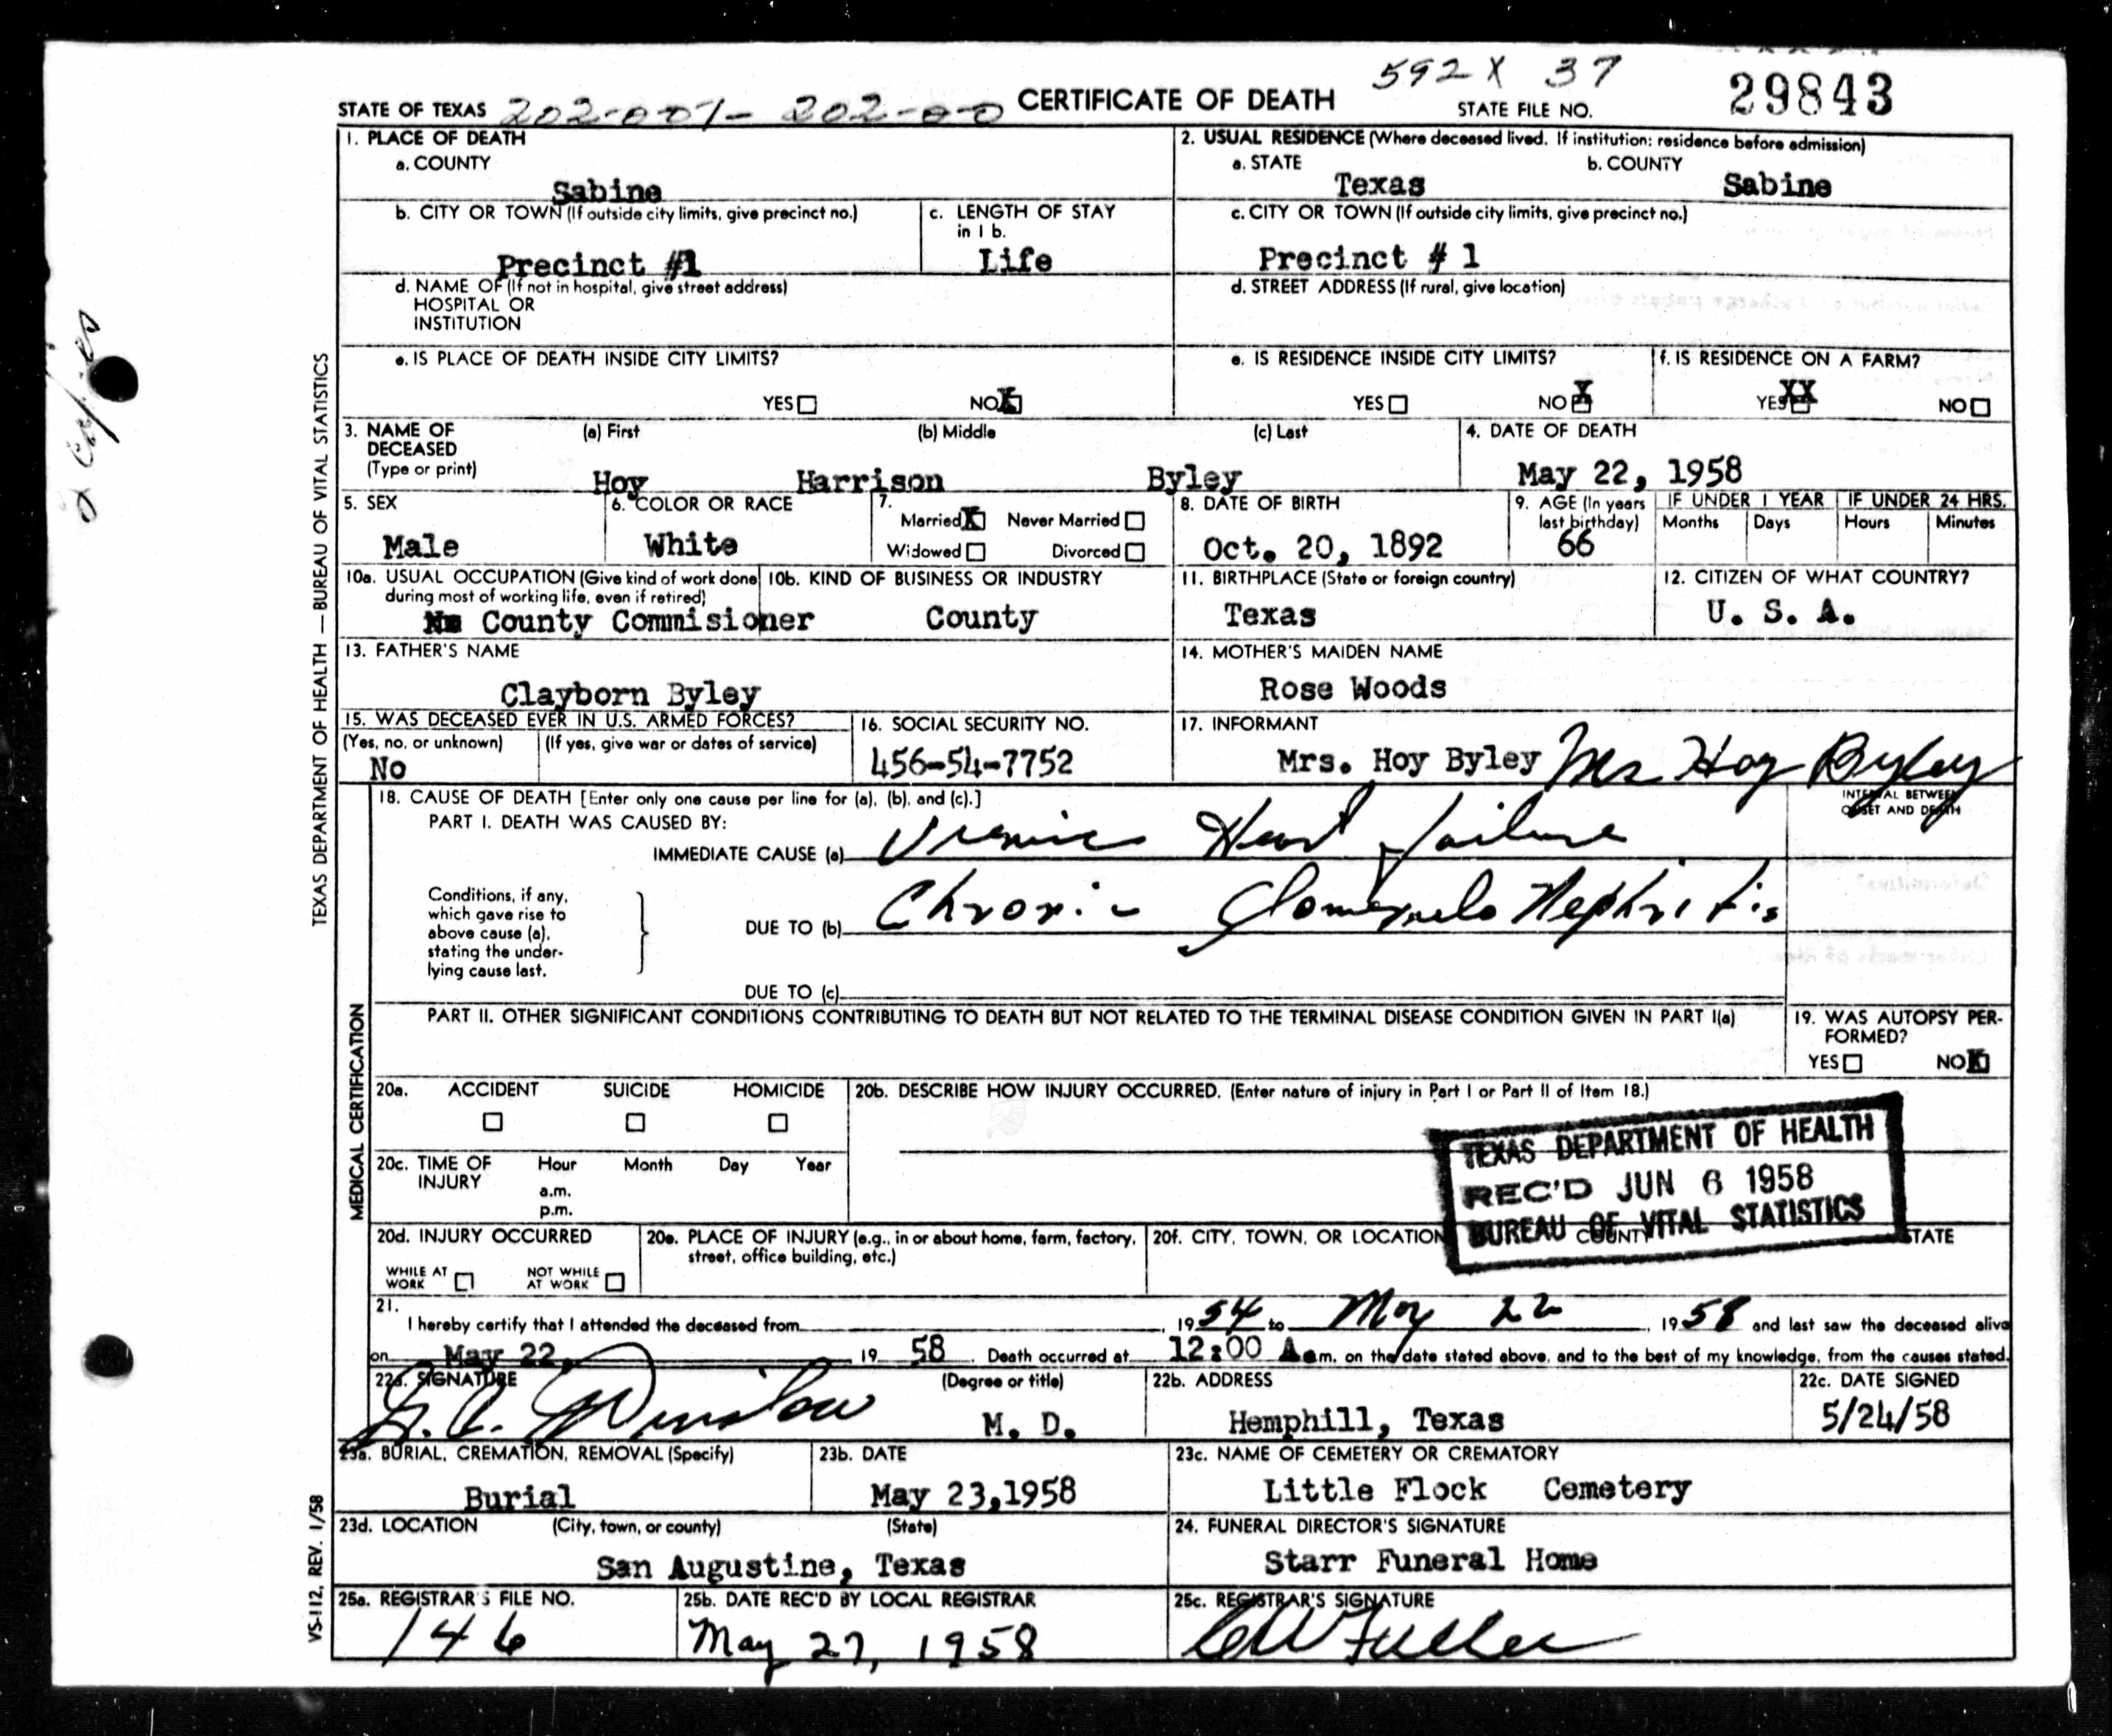 592 X 37
STATE OF TEXAS 202-001- 202-00 CERTIFICATE OF DEATH STATE FILE NO. 29843
1. PLACE OF DEATH
a. COUNTY
Sabine
2. USUAL RESIDENCE (Where deceased lived. If institution: residence before admission)
a. STATE Texas b. COUNTY Sabine
b. CITY OR TOWN (If outside city limits, give precinct no.)
Precinct #1
c. LENGTH OF STAY
in 1 b.
Life
c. CITY OR TOWN (If outside city limits, give precinct no.)
Precinct # 1
d. NAME OF (If not in hospital, give street address)
HOSPITAL OR
INSTITUTION
d. STREET ADDRESS (If rural, give location)
e. IS PLACE OF DEATH INSIDE CITY LIMITS?
YES NO X
e. IS RESIDENCE INSIDE CITY LIMITS?
YES NO X
f. IS RESIDENCE ON A FARM?
YES XX NO
3. NAME OF
DECEASED
(Type or print)
(a) First (b) Middle (c) Last
Hoy Harrison Byley
4. DATE OF DEATH
May 22, 1958
5. SEX
Male
6. COLOR OR RACE
White
7.
Married X Never Married
Widowed Divorced
8. DATE OF BIRTH
Oct. 20, 1892
9. AGE (In years
last birthday)
66
IF UNDER 1 YEAR IF UNDER 24 HRS.
Months Days Hours Minutes
10a. USUAL OCCUPATION (Give kind of work done
during most of working life, even if retired)
County Commisioner
10b. KIND OF BUSINESS OR INDUSTRY
County
11. BIRTHPLACE (State or foreign country)
Texas
12. CITIZEN OF WHAT COUNTRY?
U. S. A.
13. FATHER'S NAME
Clayborn Byley
14. MOTHER'S MAIDEN NAME
Rose Woods
15. WAS DECEASED EVER IN U.S. ARMED FORCES?
(Yes, no, or unknown) (If yes, give war or dates of service)
No
16. SOCIAL SECURITY NO.
456-54-7752
17. INFORMANT
Mrs. Hoy Byley Mrs Hoy Byley
18. CAUSE OF DEATH [Enter only one cause per line for (a), (b), and (c).]
INTERVAL BETWEEN
ONSET AND DEATH
PART I. DEATH WAS CAUSED BY:
IMMEDIATE CAUSE (a) Uremic Heart Failure
Conditions, if any,
which gave rise to
above cause (a),
stating the under-
lying cause last.
DUE TO (b) Chronic Glomerulo Nephritis
DUE TO (c)
PART II. OTHER SIGNIFICANT CONDITIONS CONTRIBUTING TO DEATH BUT NOT RELATED TO THE TERMINAL DISEASE CONDITION GIVEN IN PART I(a)
19. WAS AUTOPSY PER-
FORMED?
YES NO X
20a. ACCIDENT SUICIDE HOMICIDE
20b. DESCRIBE HOW INJURY OCCURRED. (Enter nature of injury in Part I or Part II of Item 18.)
20c. TIME OF
INJURY
Hour Month Day Year
a.m.
p.m.
TEXAS DEPARTMENT OF HEALTH
REC'D JUN 6 1958
BUREAU OF VITAL STATISTICS
20d. INJURY OCCURRED
WHILE AT
WORK
NOT WHILE
AT WORK
20e. PLACE OF INJURY (e.g., in or about home, farm, factory,
street, office building, etc.)
20f. CITY, TOWN, OR LOCATION COUNTY STATE
21.
I hereby certify that I attended the deceased from , 1954 to May 22 , 1958 and last saw the deceased alive
on May 22, 19 58 . Death occurred at 12:00 A.m. on the date stated above, and to the best of my knowledge, from the causes stated.
22a. SIGNATURE (Degree or title)
Winslow M. D.
22b. ADDRESS
Hemphill, Texas
22c. DATE SIGNED
5/24/58
23a. BURIAL, CREMATION, REMOVAL (Specify)
Burial
23b. DATE
May 23,1958
23c. NAME OF CEMETERY OR CREMATORY
Little Flock Cemetery
23d. LOCATION (City, town, or county) (State)
San Augustine, Texas
24. FUNERAL DIRECTOR'S SIGNATURE
Starr Funeral Home
25a. REGISTRAR'S FILE NO.
146
25b. DATE REC'D BY LOCAL REGISTRAR
May 27, 1958
25c. REGISTRAR'S SIGNATURE
CW Fuller
TEXAS DEPARTMENT OF HEALTH — BUREAU OF VITAL STATISTICS
MEDICAL CERTIFICATION
VS-112, REV. 1/58